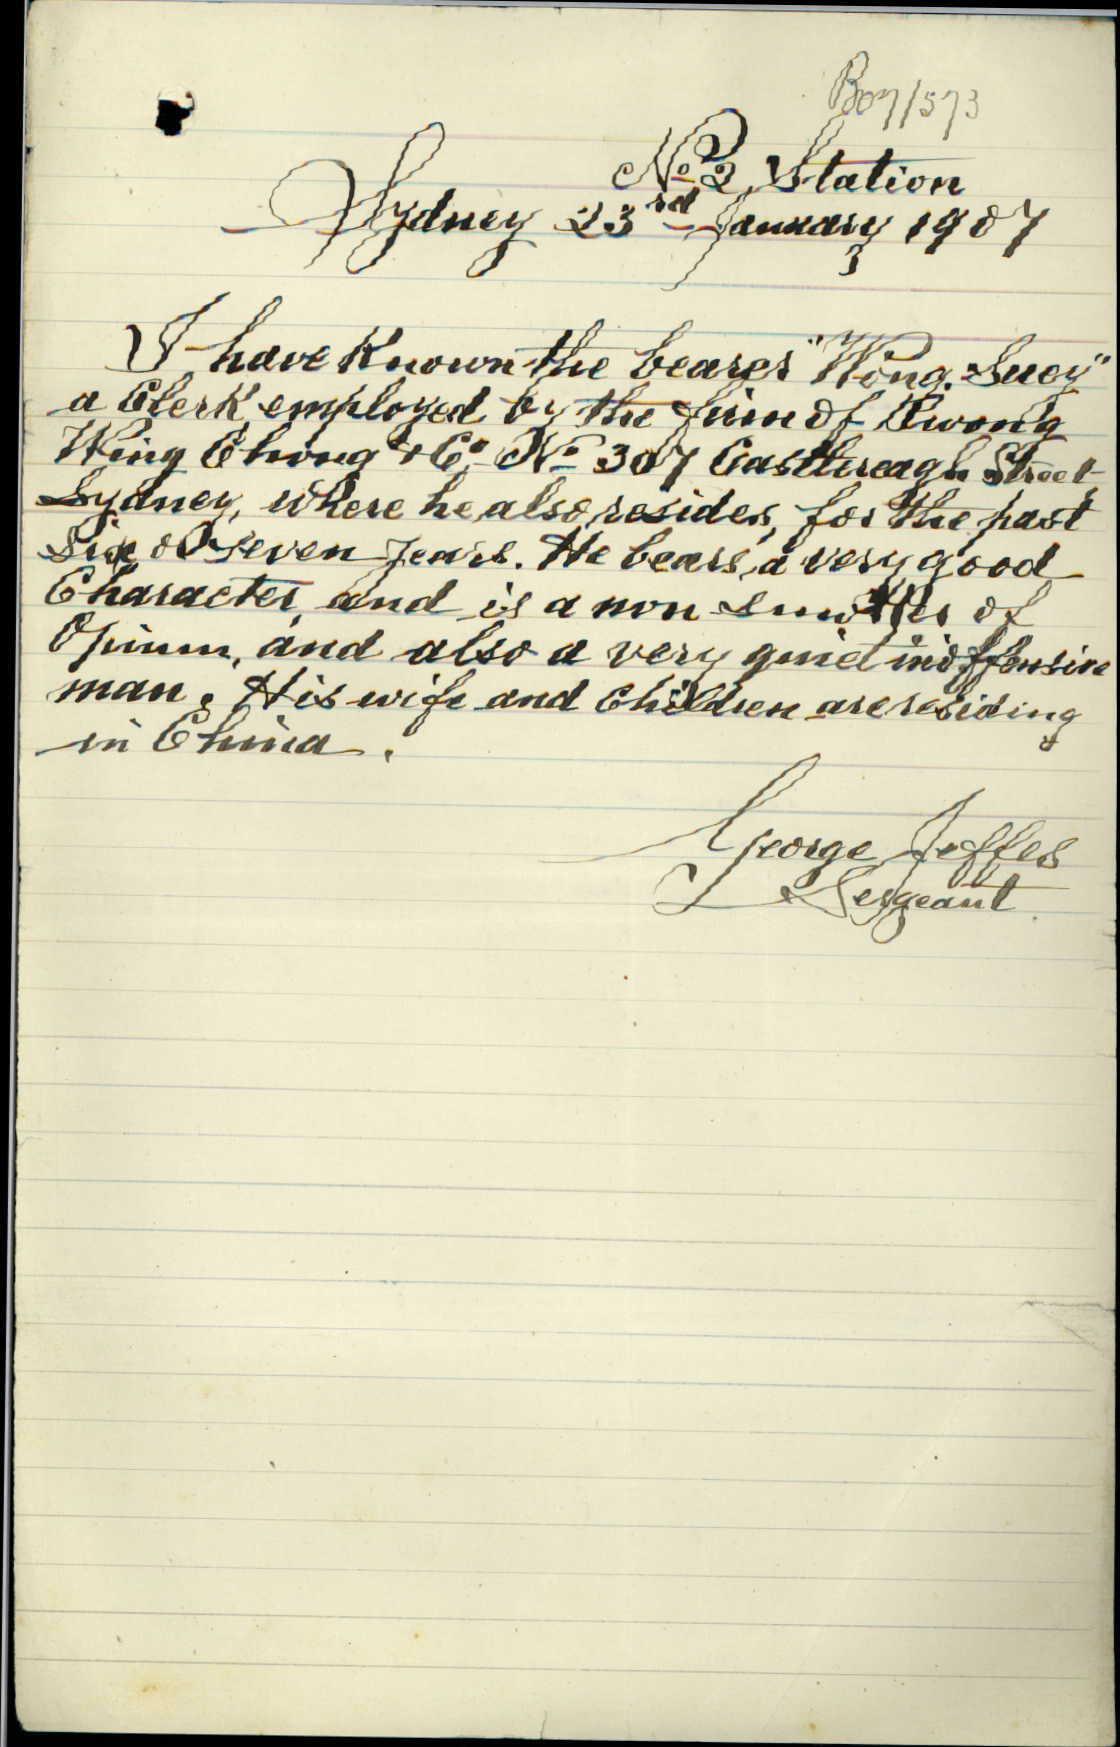 B07/573
No 2 Station
Sydney 23rd January 1907
I have Known the bearer "Wong Suey"
a Clerk employed by the firm of Kwong
Wing Chong & Co No 307 Castlereagh Street
Sydney, where he also resides, for the past
Six or Seven years. He bears a very good
Character and is a non Smoker of
Opium, and also a very quiet inoffensive
man. His wife and Children are residing
in China.
George Jeffes
Sergeant